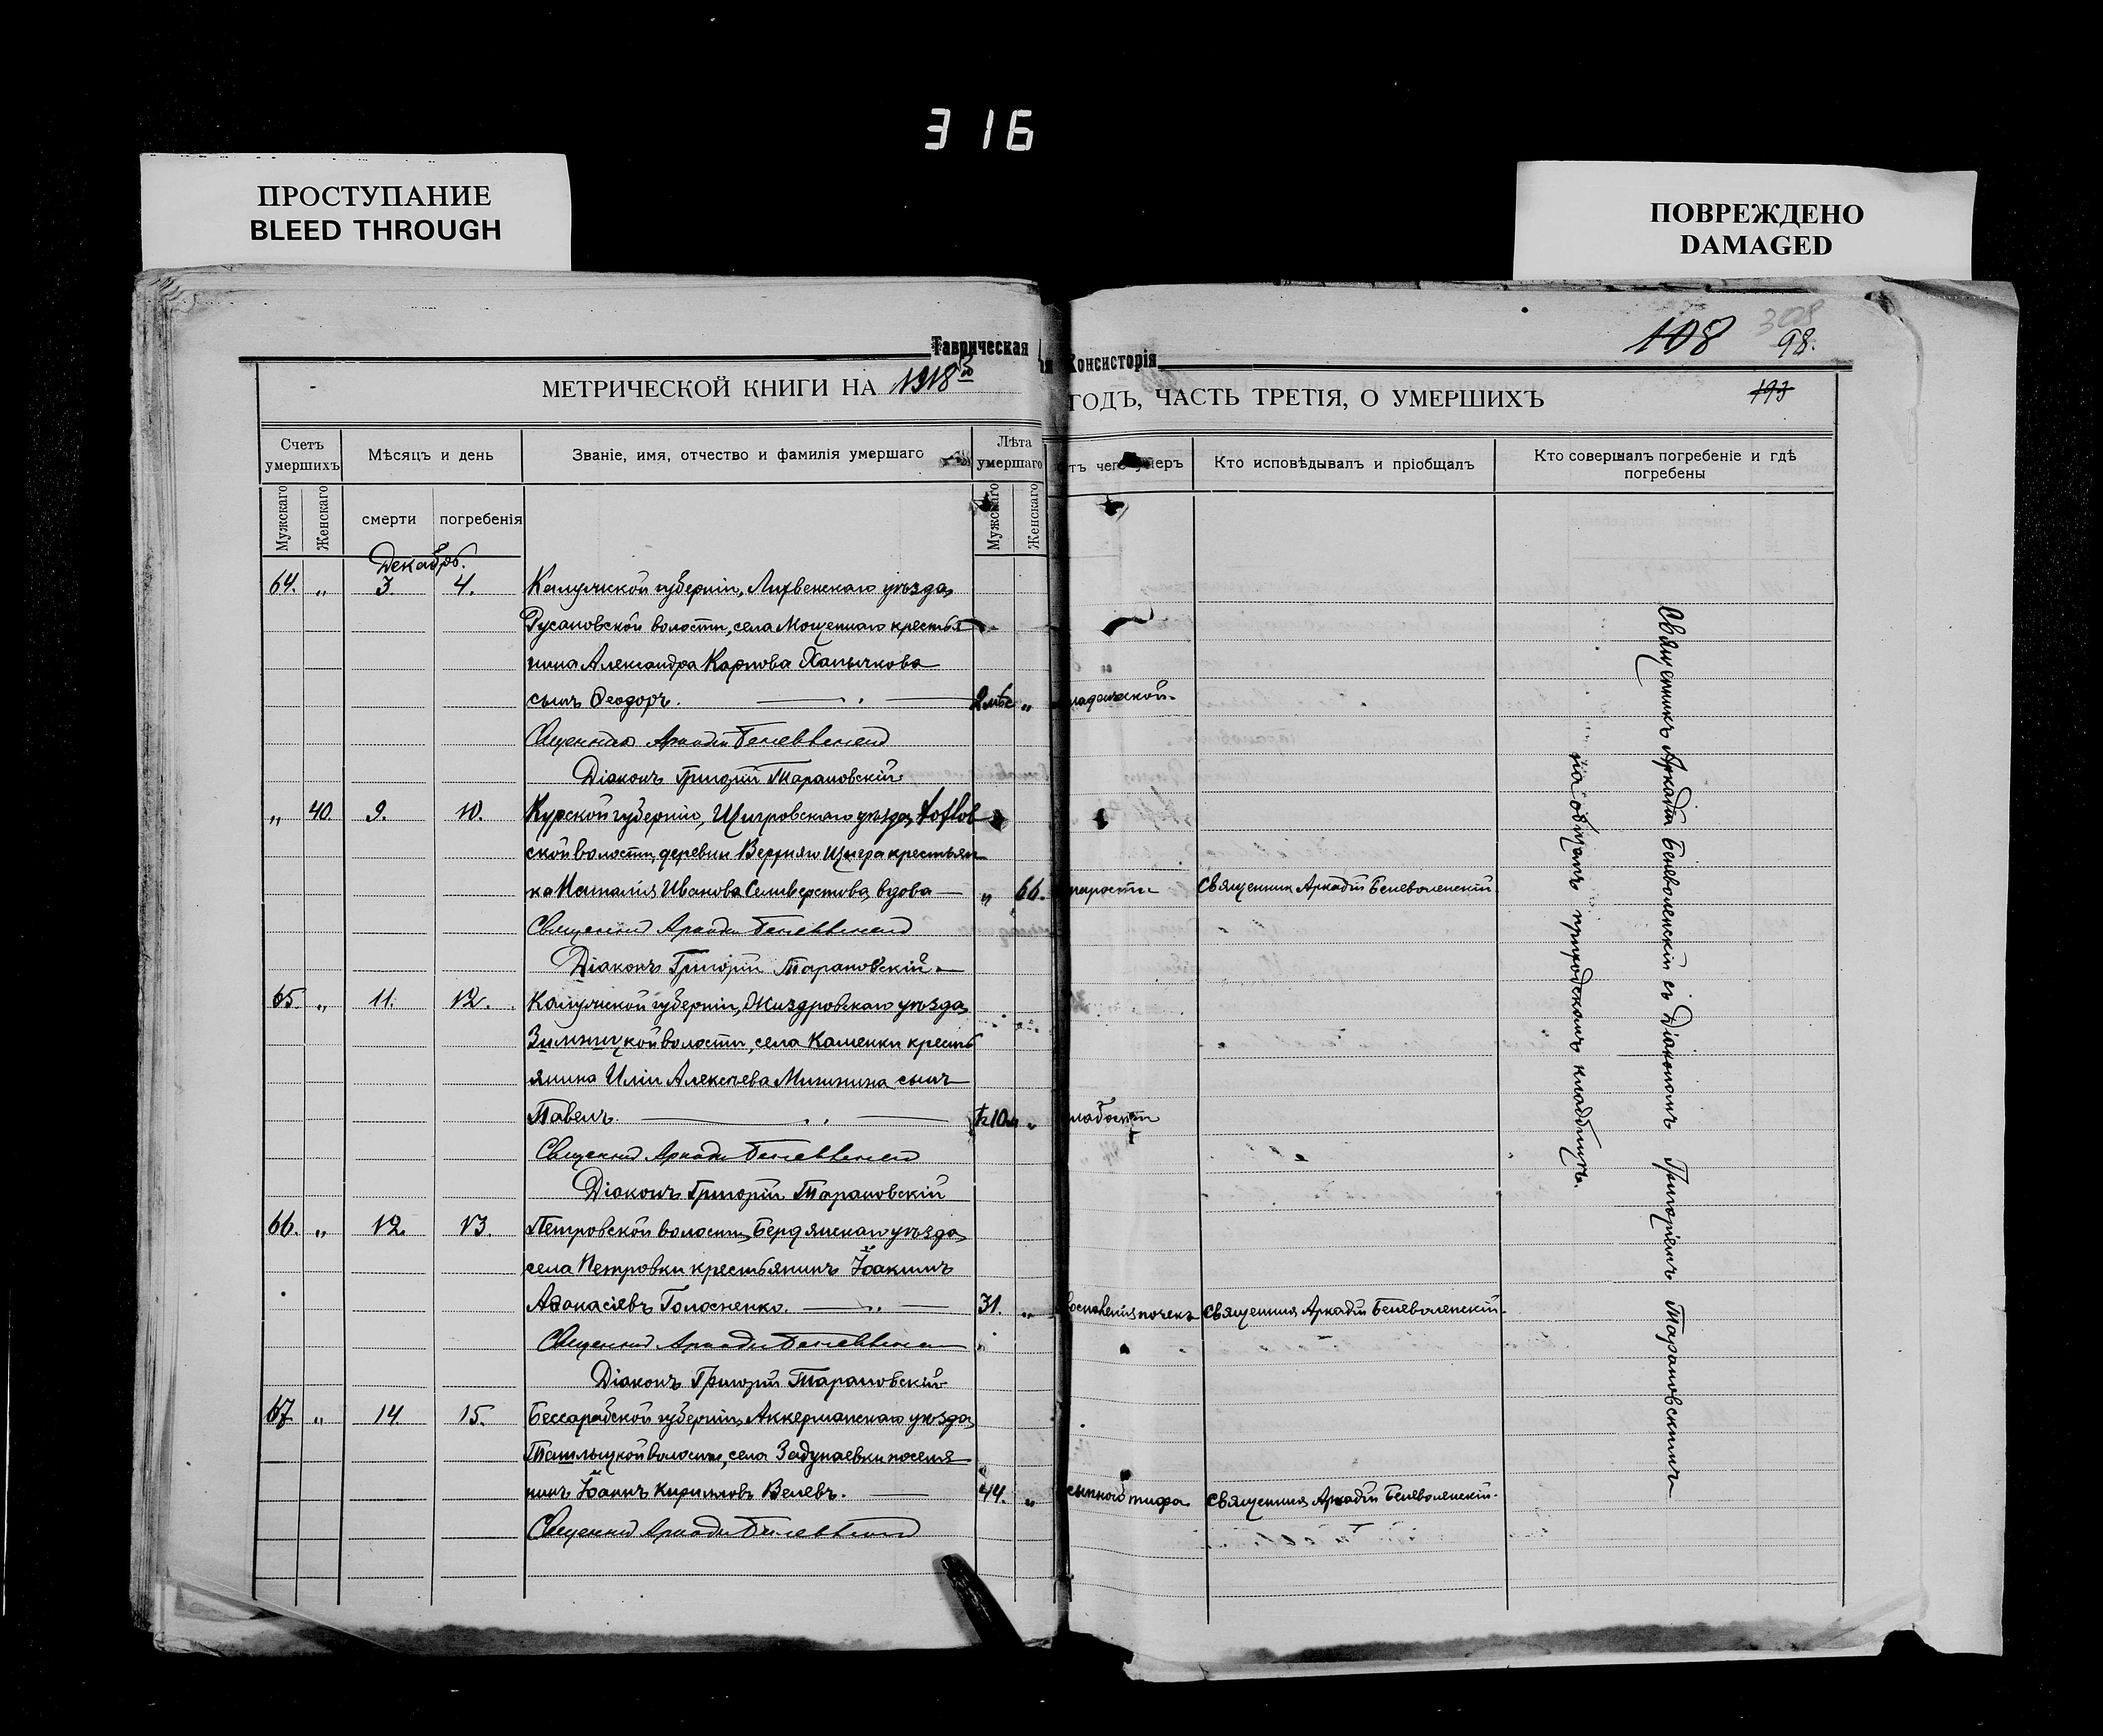 316
ПРОСТУПАНИЕ
BLEED THROUGH
ПОВРЕЖДЕНО
DAMAGED
Таврическая Консисторія
108 308 98.
193
МЕТРИЧЕСКОЙ КНИГИ НА 1918 ГОДЪ, ЧАСТЬ ТРЕТІЯ, О УМЕРШИХЪ
Счетъ умершихъ
Мѣсяцъ и день
Званіе, имя, отчество и фамилія умершаго
Лѣта умершаго
Кто исповѣдывалъ и пріобщалъ
Кто совершалъ погребеніе и гдѣ погребены
Мужскаго Женскаго смерти погребенія Мужскаго Женскаго
Декабрь.
64. „ 3. 4. Калужской губерніи, Лихвенскаго уѣзда,
Русановской волости, села Мощенаго крестья
нина Александра Карпова
сынъ Ѳеодоръ. 2 мѣс „
Священникъ Аркадій Беневоленскій
Діаконъ Григорій Тарановскій.
„ 40 9. 10. Курской губерніи, Щигровскаго уѣзда,
ской волости, деревни Щигра крестьян
ка Наталія Иванова Селиверстова, вдова „ 66. старости Священникъ Аркадій Беневоленскій.
Священникъ Аркадій Беневоленскій
Діаконъ Григорій Тарановскій.
65. „ 11. 12. Калужской губерніи, Жиздровскаго уѣзда,
Зимницкой волости, села Каменки кресть
янина Иліи Алексѣева Минкина сынъ
Павелъ. „ слабости
Священникъ Аркадій Беневоленскій
Діаконъ Григорій Тарановскій
66. „ 12. 13. Петровской волости, Бердянскаго уѣзда,
села Петровки крестьянинъ Іоакимъ
Аѳанасіевъ Голосненко. 31. „ воспаленія почекъ Священникъ Аркадій Беневоленскій.
Священникъ Аркадій Беневоленскій
Діаконъ Григорій Тарановскій
67 „ 14 15. Бессарабской губерніи, Аккерманскаго уѣзда,
Ташлыцкой волости, села Задунаевки поселя
нинъ Іоаннъ Кирилловъ Велевъ. 44. „ сыпного тифа Священникъ Аркадій Беневоленскій.
Священникъ Аркадій Беневоленскій
Священникъ Аркадій Беневоленскій съ Діакономъ Григоріемъ Тарановскимъ
на общемъ приходскомъ кладбищѣ.